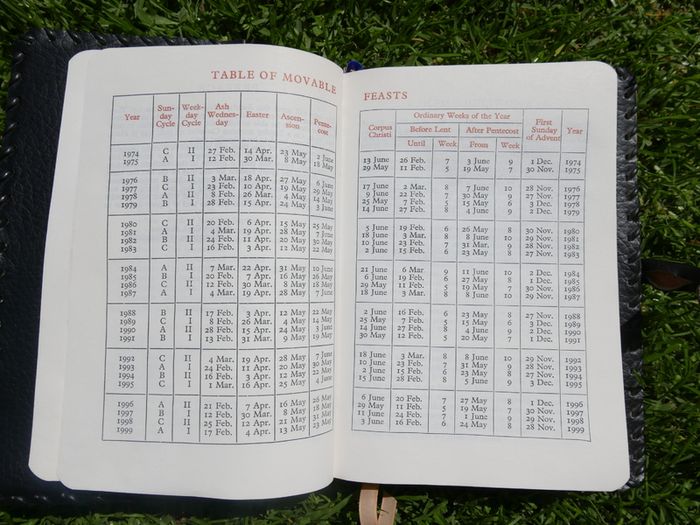 TABLE OF MOVABLE
Year Sun-day Cycle Week-day Cycle Ash Wednes-day Easter Ascen-sion Pente-cost
1974 C II 27 Feb. 14 Apr. 23 May 2 June
1975 A I 12 Feb. 30 Mar. 8 May 18 May
1976 B II 3 Mar. 18 Apr. 27 May 6 June
1977 C I 23 Feb. 10 Apr. 19 May 29 May
1978 A II 8 Feb. 26 Mar. 4 May 14 May
1979 B I 28 Feb. 15 Apr. 24 May 3 June
1980 C II 20 Feb. 6 Apr. 15 May 25 May
1981 A I 4 Mar. 19 Apr. 28 May 7 June
1982 B II 24 Feb. 11 Apr. 20 May 30 May
1983 C I 16 Feb. 3 Apr. 12 May 22 May
1984 A II 7 Mar. 22 Apr. 31 May 10 June
1985 B I 20 Feb. 7 Apr. 16 May 26 May
1986 C II 12 Feb. 30 Mar. 8 May 18 May
1987 A I 4 Mar. 19 Apr. 28 May 7 June
1988 B II 17 Feb. 3 Apr. 12 May 22 May
1989 C I 8 Feb. 26 Mar. 4 May 14 May
1990 A II 28 Feb. 15 Apr. 24 May 3 June
1991 B I 13 Feb. 31 Mar. 9 May 19 May
1992 C II 4 Mar. 19 Apr. 28 May 7 June
1993 A I 24 Feb. 11 Apr. 20 May 30 May
1994 B II 16 Feb. 3 Apr. 12 May 22 May
1995 C I 1 Mar. 16 Apr. 25 May 4 June
1996 A II 21 Feb. 7 Apr. 16 May 26 May
1997 B I 12 Feb. 30 Mar. 8 May 18 May
1998 C II 25 Feb. 12 Apr. 21 May 31 May
1999 A I 17 Feb. 4 Apr. 13 May 23 May
FEASTS
Ordinary Weeks of the Year
Corpus Christi Before Lent After Pentecost First Sunday of Advent Year
Until Week From Week
13 June 26 Feb. 7 3 June 9 1 Dec. 1974
29 May 11 Feb. 5 19 May 7 30 Nov. 1975
17 June 2 Mar. 8 7 June 10 28 Nov. 1976
9 June 22 Feb. 7 30 May 9 27 Nov. 1977
25 May 7 Feb. 5 15 May 6 3 Dec. 1978
14 June 27 Feb. 8 4 June 9 2 Dec. 1979
5 June 19 Feb. 6 26 May 8 30 Nov. 1980
18 June 3 Mar. 8 8 June 10 29 Nov. 1981
10 June 23 Feb. 7 31 May 9 28 Nov. 1982
2 June 15 Feb. 6 23 May 8 27 Nov. 1983
21 June 6 Mar. 9 11 June 10 2 Dec. 1984
6 June 19 Feb. 6 27 May 8 1 Dec. 1985
29 May 11 Feb. 5 19 May 7 30 Nov. 1986
18 June 3 Mar. 8 8 June 10 29 Nov. 1987
2 June 16 Feb. 6 23 May 8 27 Nov. 1988
25 May 7 Feb. 5 15 May 6 3 Dec. 1989
14 June 27 Feb. 8 4 June 9 2 Dec. 1990
30 May 12 Feb. 5 20 May 7 1 Dec. 1991
18 June 3 Mar. 8 8 June 10 29 Nov. 1992
10 June 23 Feb. 7 31 May 9 28 Nov. 1993
2 June 15 Feb. 6 23 May 8 27 Nov. 1994
15 June 28 Feb. 8 5 June 9 3 Dec. 1995
6 June 20 Feb. 7 27 May 8 1 Dec. 1996
29 May 11 Feb. 5 19 May 7 30 Nov. 1997
11 June 24 Feb. 7 1 June 9 29 Nov. 1998
3 June 16 Feb. 6 24 May 8 28 Nov. 1999